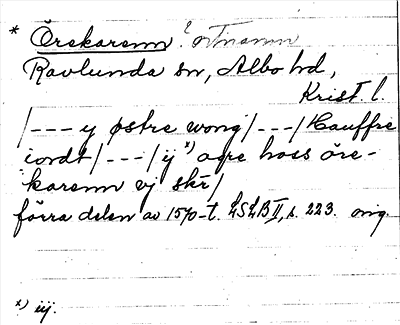 * Örekarenn
Ravlunda sn, Albo hd,
Krist l.
/--- y østre wong/---/Hauffre
iordt/---/ij x) agre hoss öre-
karenn vj skr/
förra delen av 1570-t. LSLB II, s. 223. orig.
x) iij.